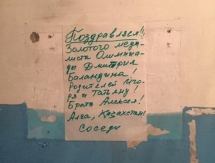 Поздравляем!!
Золотого меда-
листа Олимпиа-
ды Дмитрия
Баландина!
Родителей Иго-
ря и Татьяну!
Брата Алексея!
Алга, Казахстан!
Соседи